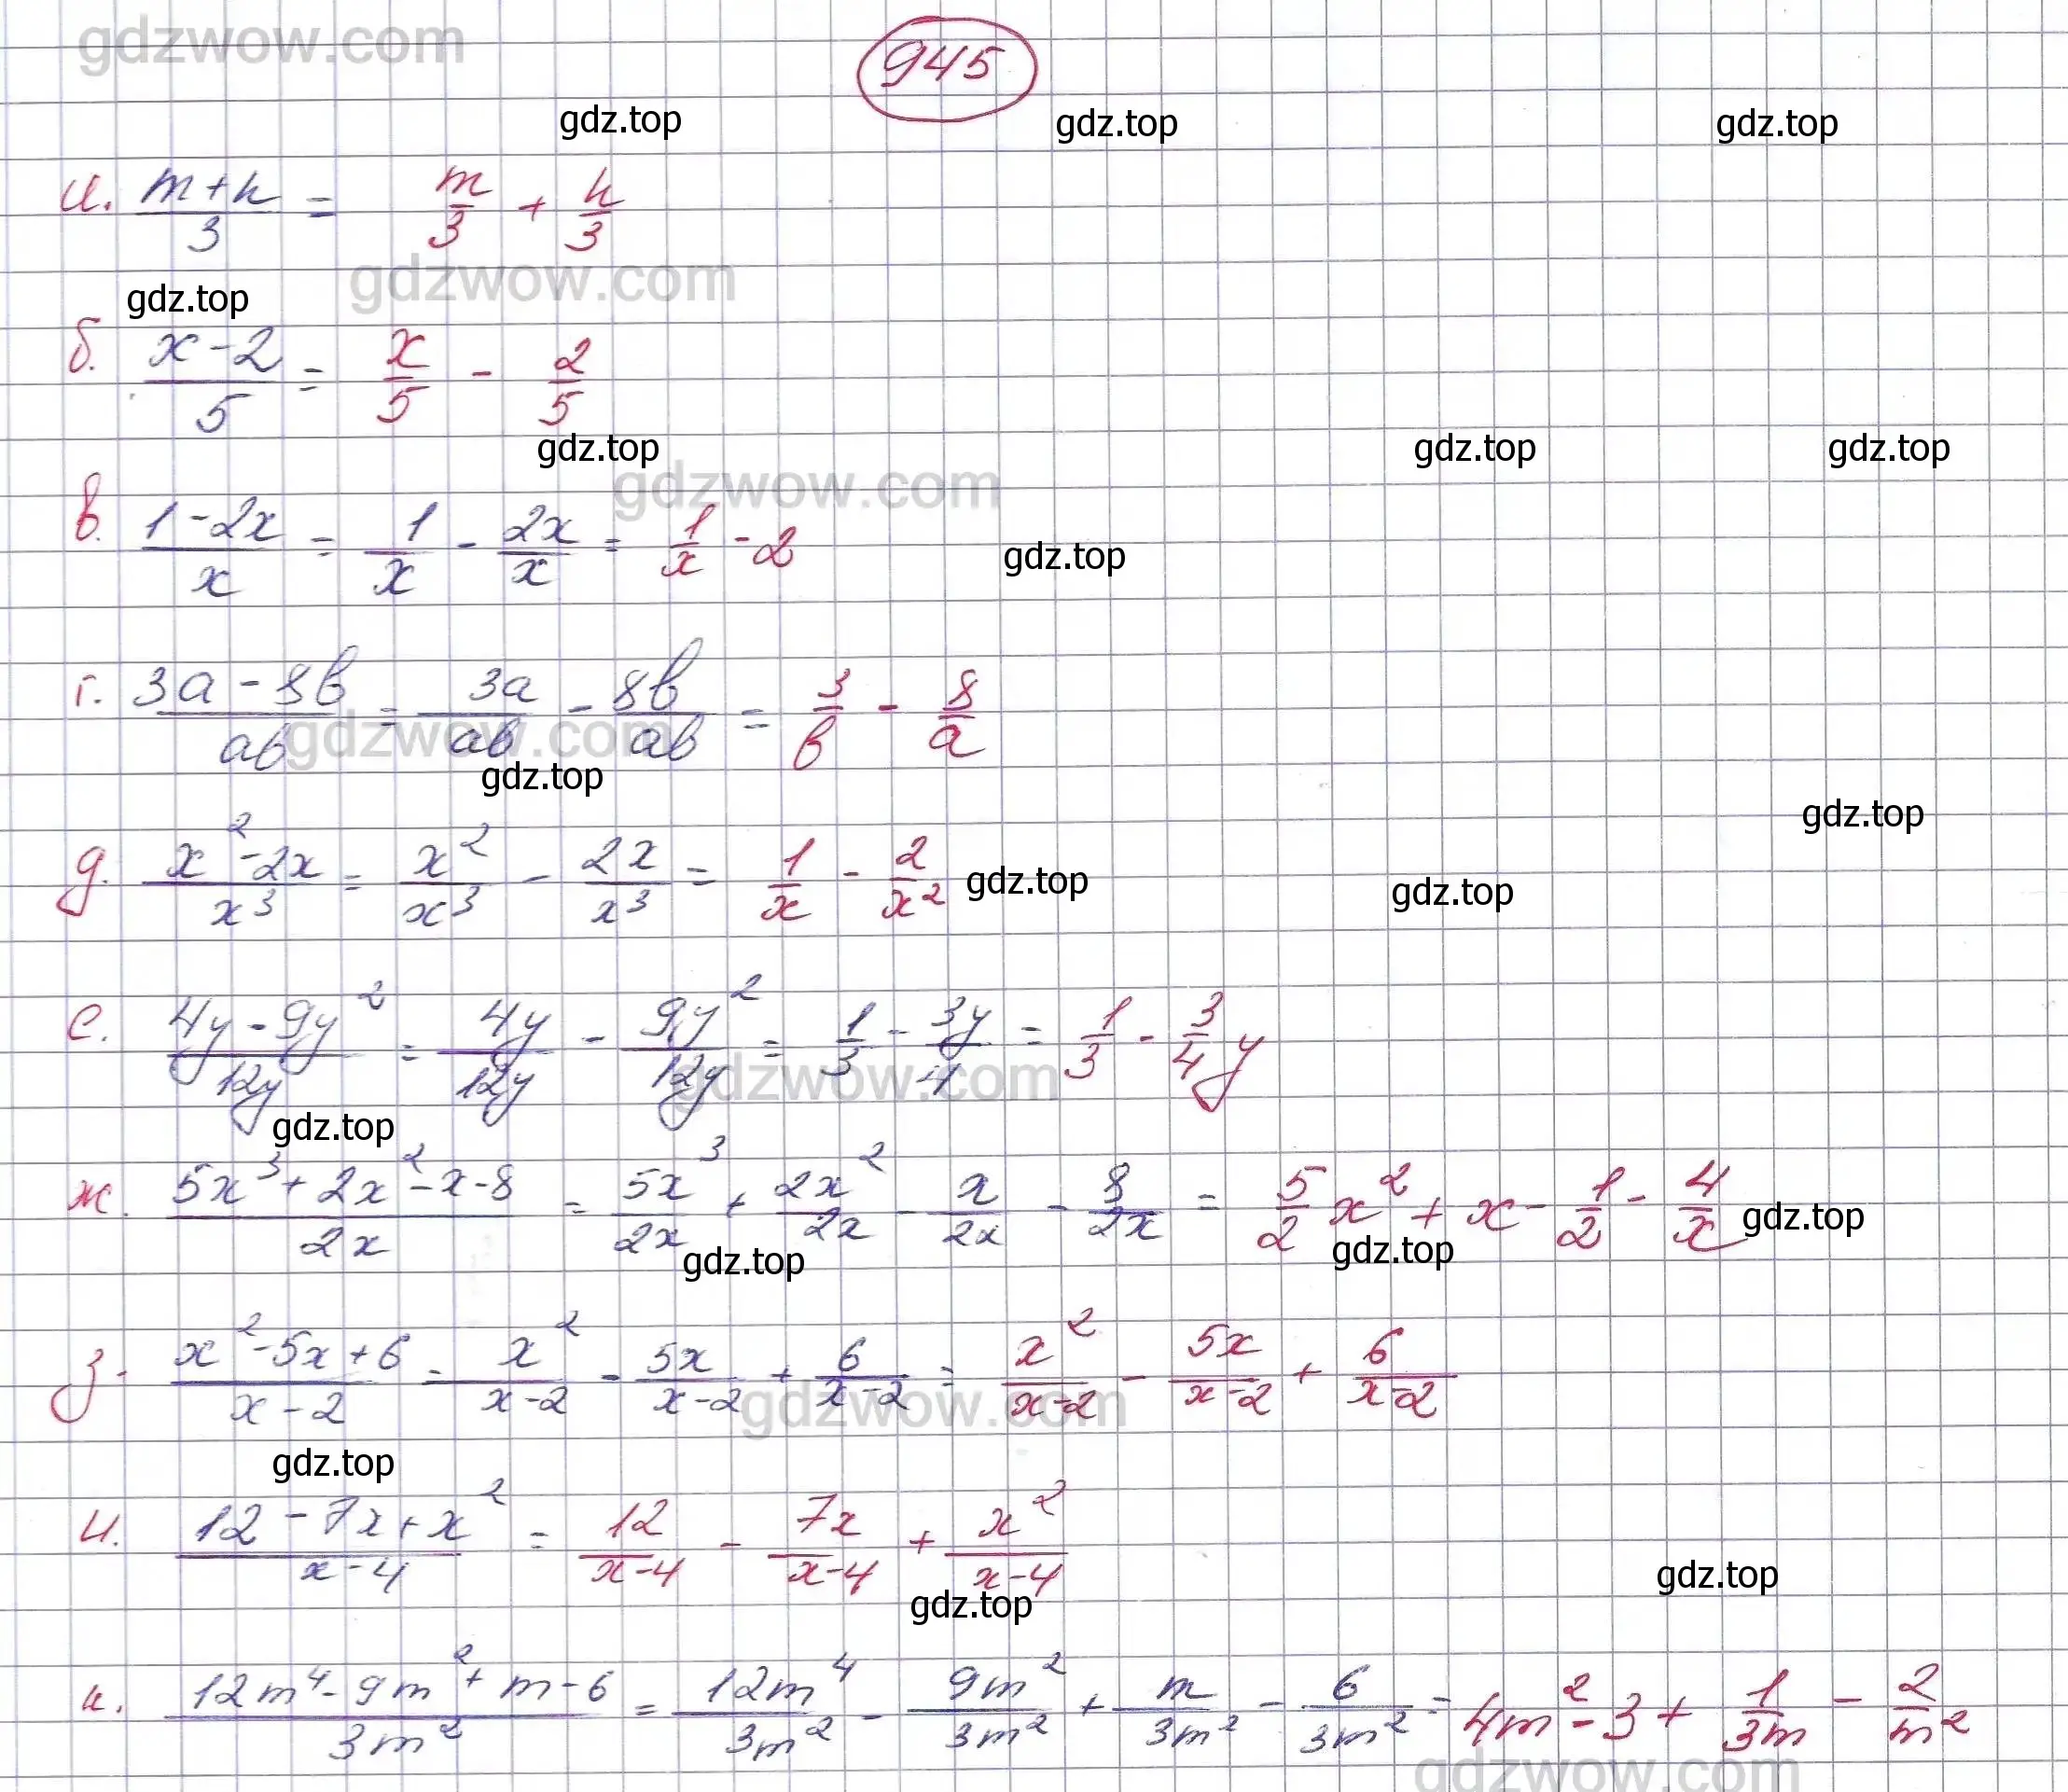 gdzwow.com
945
gdz.top gdz.top gdz.top
а. (m+n)/3 = m/3 + n/3
gdzwow.com
gdz.top
б. (x-2)/5 = x/5 - 2/5
gdz.top gdz.top gdz.top
gdzwow.com
в. (1-2x)/x = 1/x - 2x/x = 1/x - 2
gdz.top
г. (3a-8b)/ab = 3a/ab - 8b/ab = 3/b - 8/a
gdzwow.com
gdz.top
gdz.top
д. (x²-2x)/x³ = x²/x³ - 2x/x³ = 1/x - 2/x²
gdz.top gdz.top
е. (4y-9y²)/12y = 4y/12y - 9y²/12y = 1/3 - 3y/4 = 1/3 - 3/4 y
gdzwow.com
gdz.top
ж. (5x³+2x²-x-8)/2x = 5x³/2x + 2x²/2x - x/2x - 8/2x = 5/2 x² + x - 1/2 - 4/x
gdz.top
gdz.top gdz.top
з. (x²-5x+6)/(x-2) = x²/(x-2) - 5x/(x-2) + 6/(x-2) = x²/(x-2) - 5x/(x-2) + 6/(x-2)
gdzwow.com
gdz.top
и. (12-7x+x²)/(x-4) = 12/(x-4) - 7x/(x-4) + x²/(x-4)
gdz.top
gdz.top
к. (12m⁴-9m²+m-6)/3m² = 12m⁴/3m² - 9m²/3m² + m/3m² - 6/3m² = 4m²-3 + 1/3m - 2/m²
gdzwow.com